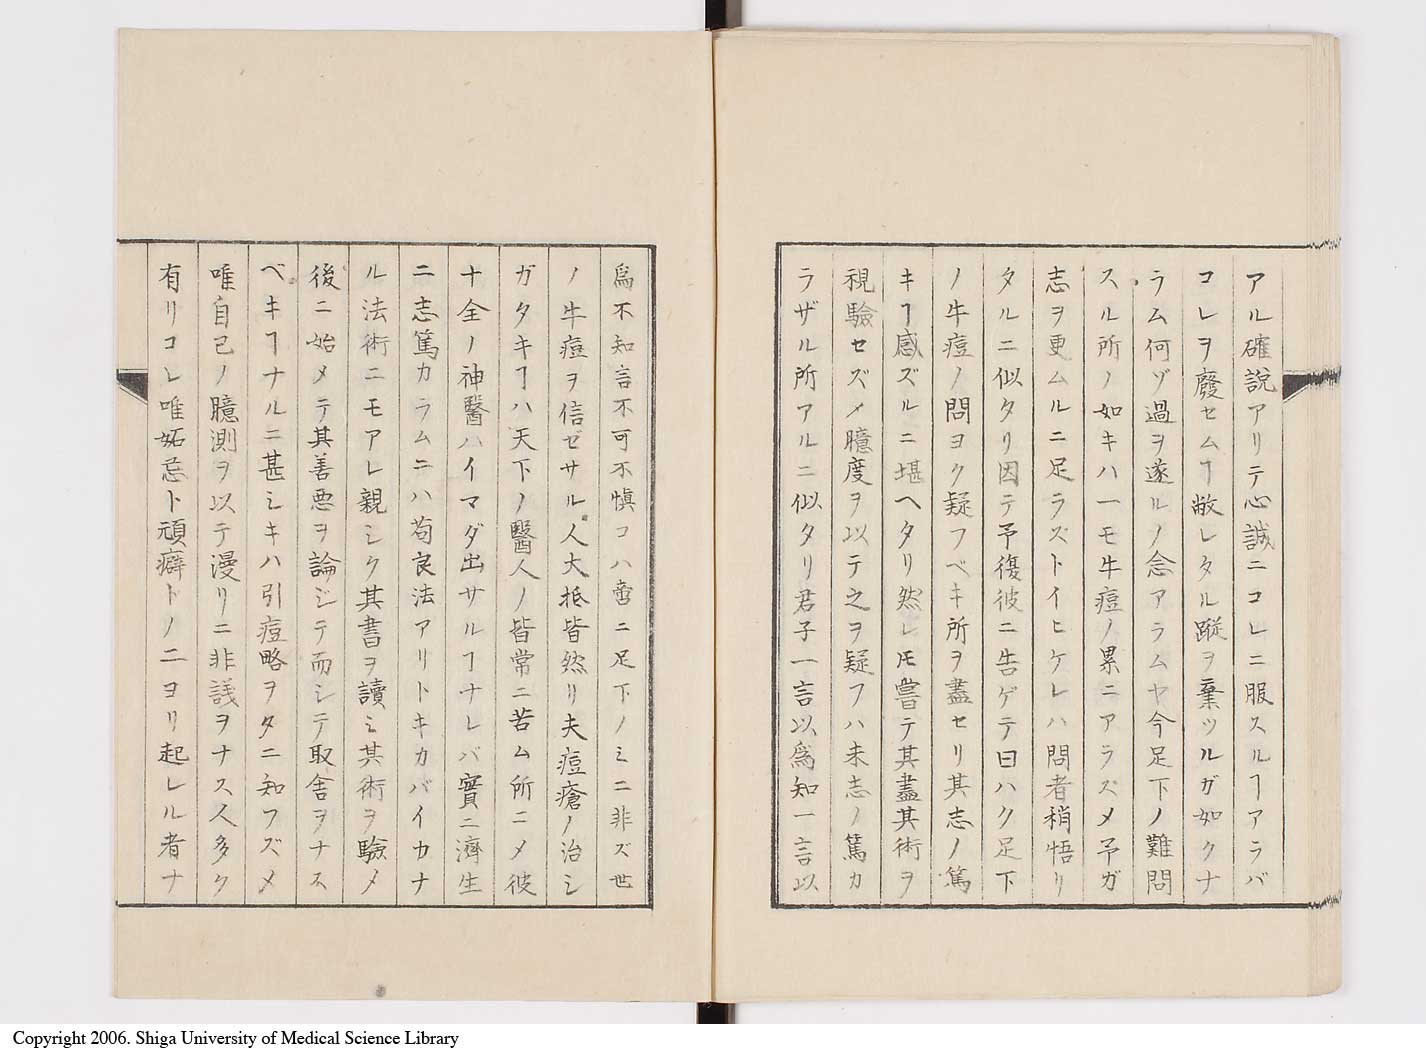 アル確説アリテ心誠ニコレニ服スルヿアラバ
コレヲ廢セムヿ敝レタル蹝ヲ棄ツルガ如クナ
ラム何ゾ過ヲ遂ルノ念アラムヤ今足下ノ難問
スル所ノ如キハ一モ牛痘ノ累ニアラズメ予ガ
志ヲ更ムルニ足ラズトイヒケレハ問者稍悟リ
タルニ似タリ因テ予復彼ニ告ゲテ曰ハク足下
ノ牛痘ノ問ヨク疑フベキ所ヲ盡セリ其志ノ篤
キヿ感ズルニ堪ヘタリ然レ𪜈嘗テ其盡其術ヲ
視驗セズメ臆度ヲ以テ之ヲ疑フハ未志ノ篤カ
ラザル所アルニ似タリ君子一言以爲知一言以
爲不知言不可不愼コハ啻ニ足下ノミニ非ズ世
ノ牛痘ヲ信ゼサル人大抵皆然リ夫痘瘡ノ治シ
ガタキヿハ天下ノ醫人ノ皆常ニ苦ム所ニメ彼
十全ノ神醫ハイマダ出サルヿナレバ實ニ濟生
ニ志篤カラムニハ苟良法アリトキカバイカナ
ル法術ニモアレ親シク其書ヲ讀ミ其術ヲ驗メ
後ニ始メテ其善悪ヲ論ジテ而シテ取舎ヲナス
ベキヿナルニ甚シキハ引痘略ヲタニ知フズメ
唯自己ノ臆測ヲ以テ漫リニ非議ヲナス人多ク
有リコレ唯妬忌ト頑癖トノ二ヨリ起レル者ナ
Copyright 2006. Shiga University of Medical Science Library